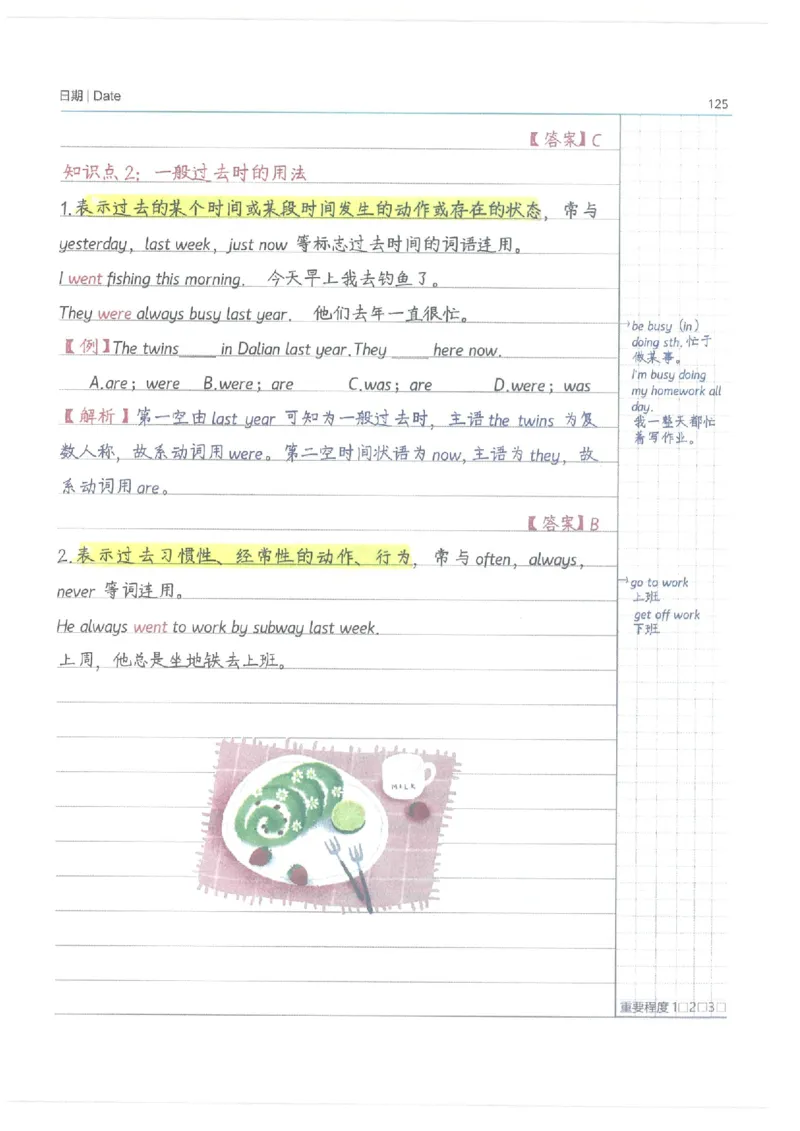 日期 | Date
125
【答案】C
知识点2：一般过去时的用法
1.表示过去的某个时间或某段时间发生的动作或存在的状态，常与
yesterday，last week，just now 等标志过去时间的词语连用。
I went fishing this morning. 今天早上我去钓鱼了。
They were always busy last year. 他们去年一直很忙。
【例】The twins____ in Dalian last year.They ____ here now.
A.are；were B.were；are C.was；are D.were；was
【解析】第一空由last year 可知为一般过去时，主语the twins 为复
数人称，故系动词用were。第二空时间状语为now,主语为they，故
系动词用are。
【答案】B
2.表示过去习惯性、经常性的动作、行为，常与often，always，
never 等词连用。
He always went to work by subway last week.
上周，他总是坐地铁去上班。
MILK
→be busy（in）
doing sth.忙于
做某事。
I'm busy doing
my homework all
day.
我一整天都忙
着写作业。
→go to work
上班
get off work
下班
重要程度 1□2□3□